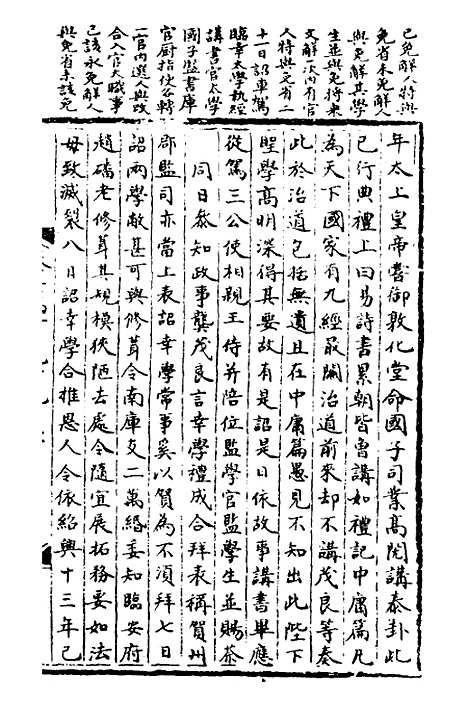 已免解人特與
免省未免解人
與免解其學
生並與免將來
文解一次內有官
人特與免省二
十一日詔車駕
臨幸太學執經
講書官太學
國子監書庫
官厨指使各轉
一官內選人與改
合入官大職事
已該永免解人
與免省未該免
年太上皇帝嘗御敦化堂命國子司業高閌講泰卦此
已行典禮上曰易詩書累朝皆曾講如禮記中庸篇凡
為天下國家有九經最關治道前來却不講茂良等奏
此於治道包括無遺且在中庸篇愚見不知出此陛下
聖學高明深得其要故有是詔是日依故事講書畢應
從駕三公使相親王侍并陪位監學官監學生並賜茶
同日參知政事龔茂良言幸學禮成合拜表稱賀州
郡監司亦當上表詔幸學常事奚以賀為不須拜七日
詔兩學敝甚可與修葺令南庫支二萬緡委知臨安府
趙磻老修葺其規模狹陋去處令隨宜展拓務要如法
毋致滅裂八日詔幸學合推恩人令依紹興十三年已